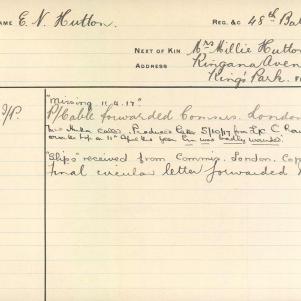 AME E. N. Hutton. REG. &c 48th Bat
NEXT OF KIN Mrs Millie Hutton
ADDRESS Ringana Aven
King's Park.
"Missing 11.4.17"
P/Cable forwarded Commis. London
Mrs Hutton calls. Produces letter 5/10/17 from C
11th April last year badly wounded.
"Slips" received from Commis. London.
final circular letter forwarded